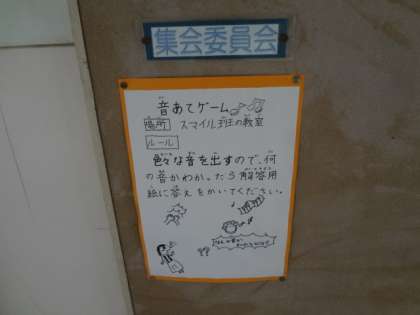 集会委員会
音あてゲーム
場所 スマイル班の教室
ルール
色々な音を出すので、何
の音かわかったら解答用
紙に答えをかいてください。